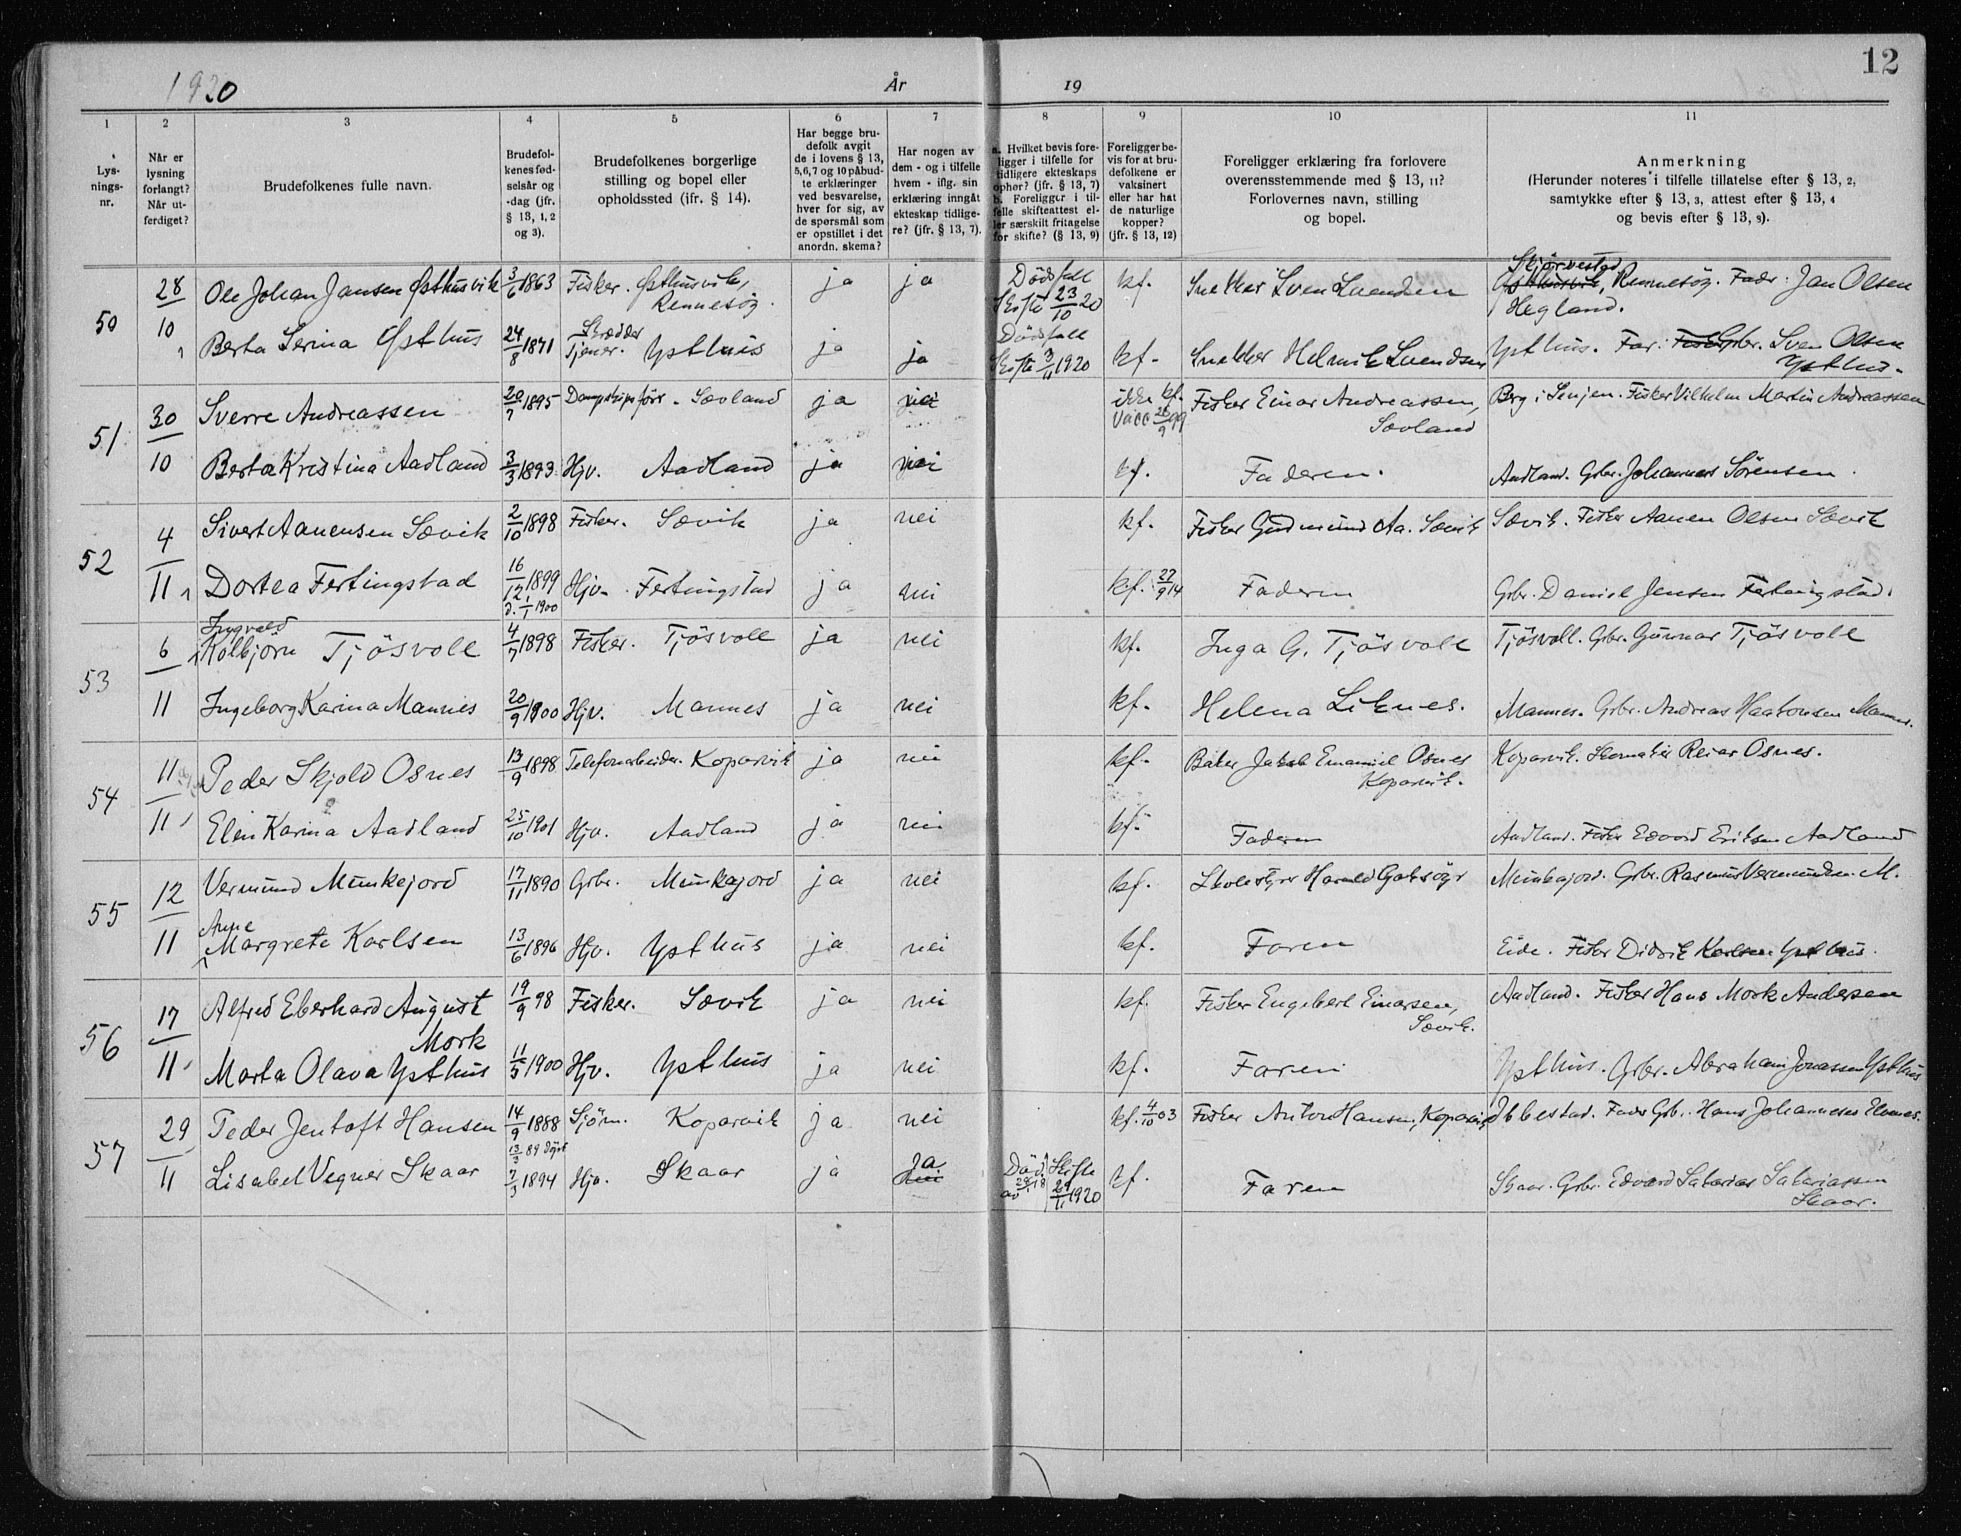 12
1920 År 19
1 2 3 4 5 6 7 8 9 10 11
Lys-
nings-
nr.
Når er
lysning
forlangt?
Når ut-
ferdiget?
Brudefolkenes fulle navn.
Brudefol-
kenes fød-
selsår og
-dag (jfr.
§ 13, 1, 2
og 3).
Brudefolkenes borgerlige
stilling og bopel eller
opholdssted (jfr. § 14).
Har begge bru-
defolk avgit
de i lovens § 13,
5, 6, 7 og 10 påbud-
te erklæringer
ved besvarelse,
hver for sig, av
de spørsmål som
er opstillet i det
anordn. skema?
Har nogen av
dem - og i tilfelle
hvem - iflg. sin
erklæring inngåt
ekteskap tidlige-
re? (jfr. § 13, 7).
a. Hvilket bevis fore-
ligger i tilfelle for
tidligere ekteskaps
ophør? (jfr. § 13, 7)
b. Foreligger i til-
felle skifteattest el-
ler særskilt fritagelse
for skifte? (§ 13, 9)
Foreligger be-
vis for at bru-
defolkene er
vaksinert
eller har hat
de naturlige
kopper?
(jfr. § 13, 12)
Foreligger erklæring fra forlovere
overensstemmende med § 13, 11?
Forlovernes navn, stilling
og bopel.
Anmerkning
(Herunder noteres i tilfelle tillatelse efter § 13, 2,
samtykke efter § 13, 3, attest efter § 13, 4
og bevis efter § 13, 9).
50 28/10 Ole Johan Jansen Østhusvik 3/6 1863 Fisker. Østhusvik, Rennesøy. ja ja Dødsfall Skifte 23/10 20 kf. Snekker Sven Svendsen Skjørvestad Østhusvik, Rennesøy. Fader: Jan Olsen Hegland.
Berta Serina Østhus 24/8 1871 Skrædder Tjener. Ysthus ja ja Dødsfall Skifte 3/11 1920 kf. Snekker Helmik Svendsen Ysthus. Far: Fisker Gbr. Sven Olsen Ysthus.
51 30/10 Sverre Andreassen 20/7 1895 Dampskipsfør. Sævland ja nei ikke kf. Vacc 26/9 99 Fisker Einar Andreassen, Sævland Berg i Senjen. Fisker Vilhelm Martin Andreassen
Berta Kristina Aadland 3/3 1893 Hjv. Aadland ja nei kf. Faderen. Aadland. Grbr. Johannes Sörensen.
52 4/11 Sivert Aanensen Sævik 2/10 1898 Fisker. Sævik ja nei kf. Fisker Gudmund Aa. Sævik Sævik. Fisker Aanen Olsen Sævik
Dortea Ferkingstad 16/12 1899 d. 1/1 1900 Hjv. Ferkingstad ja nei kf. 27/9 14 Faderen Grbr. Daniel Jensen Ferkingstad.
53 6/11 Ingvald Kolbjörn Tjösvoll 4/7 1898 Fisker. Tjösvoll ja nei kf. Inga G. Tjösvoll Tjösvoll. Grbr. Gunnar Tjösvoll
Ingeborg Karina Mannes 20/9 1900 Hjv. Mannes ja nei kf. Helena Liknes. Mannes. Grbr. Andreas Haakonsen Mannes.
54 11/11 Peder Skjold Osnes 13/9 1898 Telefonarbeider. Kopervik ja nei kf. Baker Jakob Emanuel Osnes Kopervik. Kopervik. Skomaker Reiar Osnes.
Elen Karina Aadland 25/10 1901 Hjv. Aadland ja nei kf. Faderen Aadland. Fisker Edvard Eriksen Aadland
55 12/11 Vermund Munkejord 17/11 1890 Grbr. Munkejord ja nei kf. Skolestyrer Harald Munkejord. Grbr. Rasmus Vermundsen M.
Anne Margrete Karlsen 13/6 1896 Hjv. Ysthus ja nei kf. Faren Eide. Fisker Didrik Karlsen Ysthus.
56 17/11 Alfred Eberhard August Mork 19/9 98 Fisker. Sævik ja nei kf. Fisker Engebert Einarsen, Sævik. Aadland. Fisker Hans Mork Andersen
Marta Olava Ysthus 11/5 1900 Hjv. Ysthus ja nei kf. Faren Ysthus. Grbr. Abraham Jonassen Ysthus
57 29/11 Peder Jentoft Hansen 14/9 1888 13/3 89 døpt Sjøm. Kopervik ja nei kf. 4/10 03 Fisker Anton Hansen, Kopervik Ibbestad. Fader Grb. Hans Johannesen
Lisabel Vegner Skaar 7/3 1894 Hjv. Skaar ja ja nei Død. Skifte 29/11 1920 kf. Faren Skaar. Grbr. Edvard Sakarias Sakariassen Skaar.